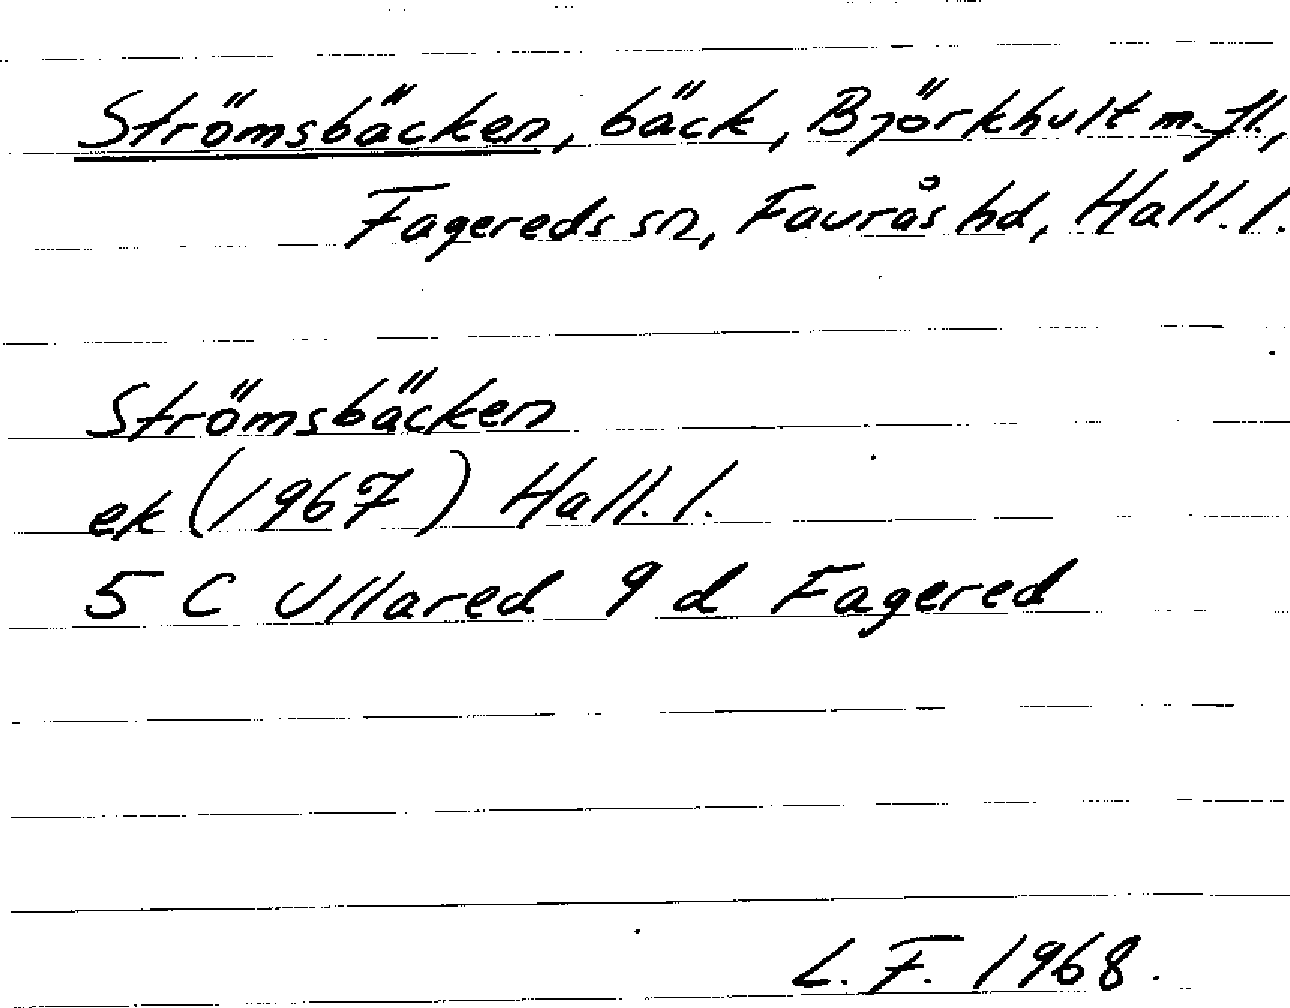 Strömsbäcken, bäck, Björkhult m.fl.,
Fagereds sn, Faurås hd, Hall. l.
Strömsbäcken
ek (1967) Hall. l.
5 C Ullared 9 d Fagered
L. F. 1968.